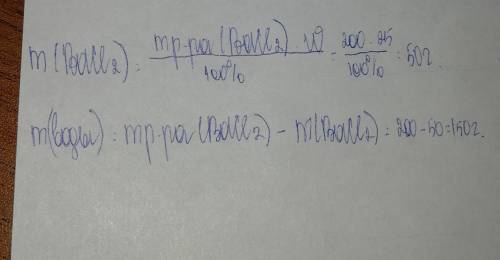 m(BaCl2) = mр-ра(BaCl2) · W / 100% = 200 · 25 / 100% = 50г.
m(воды) = mр-ра(BaCl2) - m(BaCl2) = 200 - 50 = 150г.